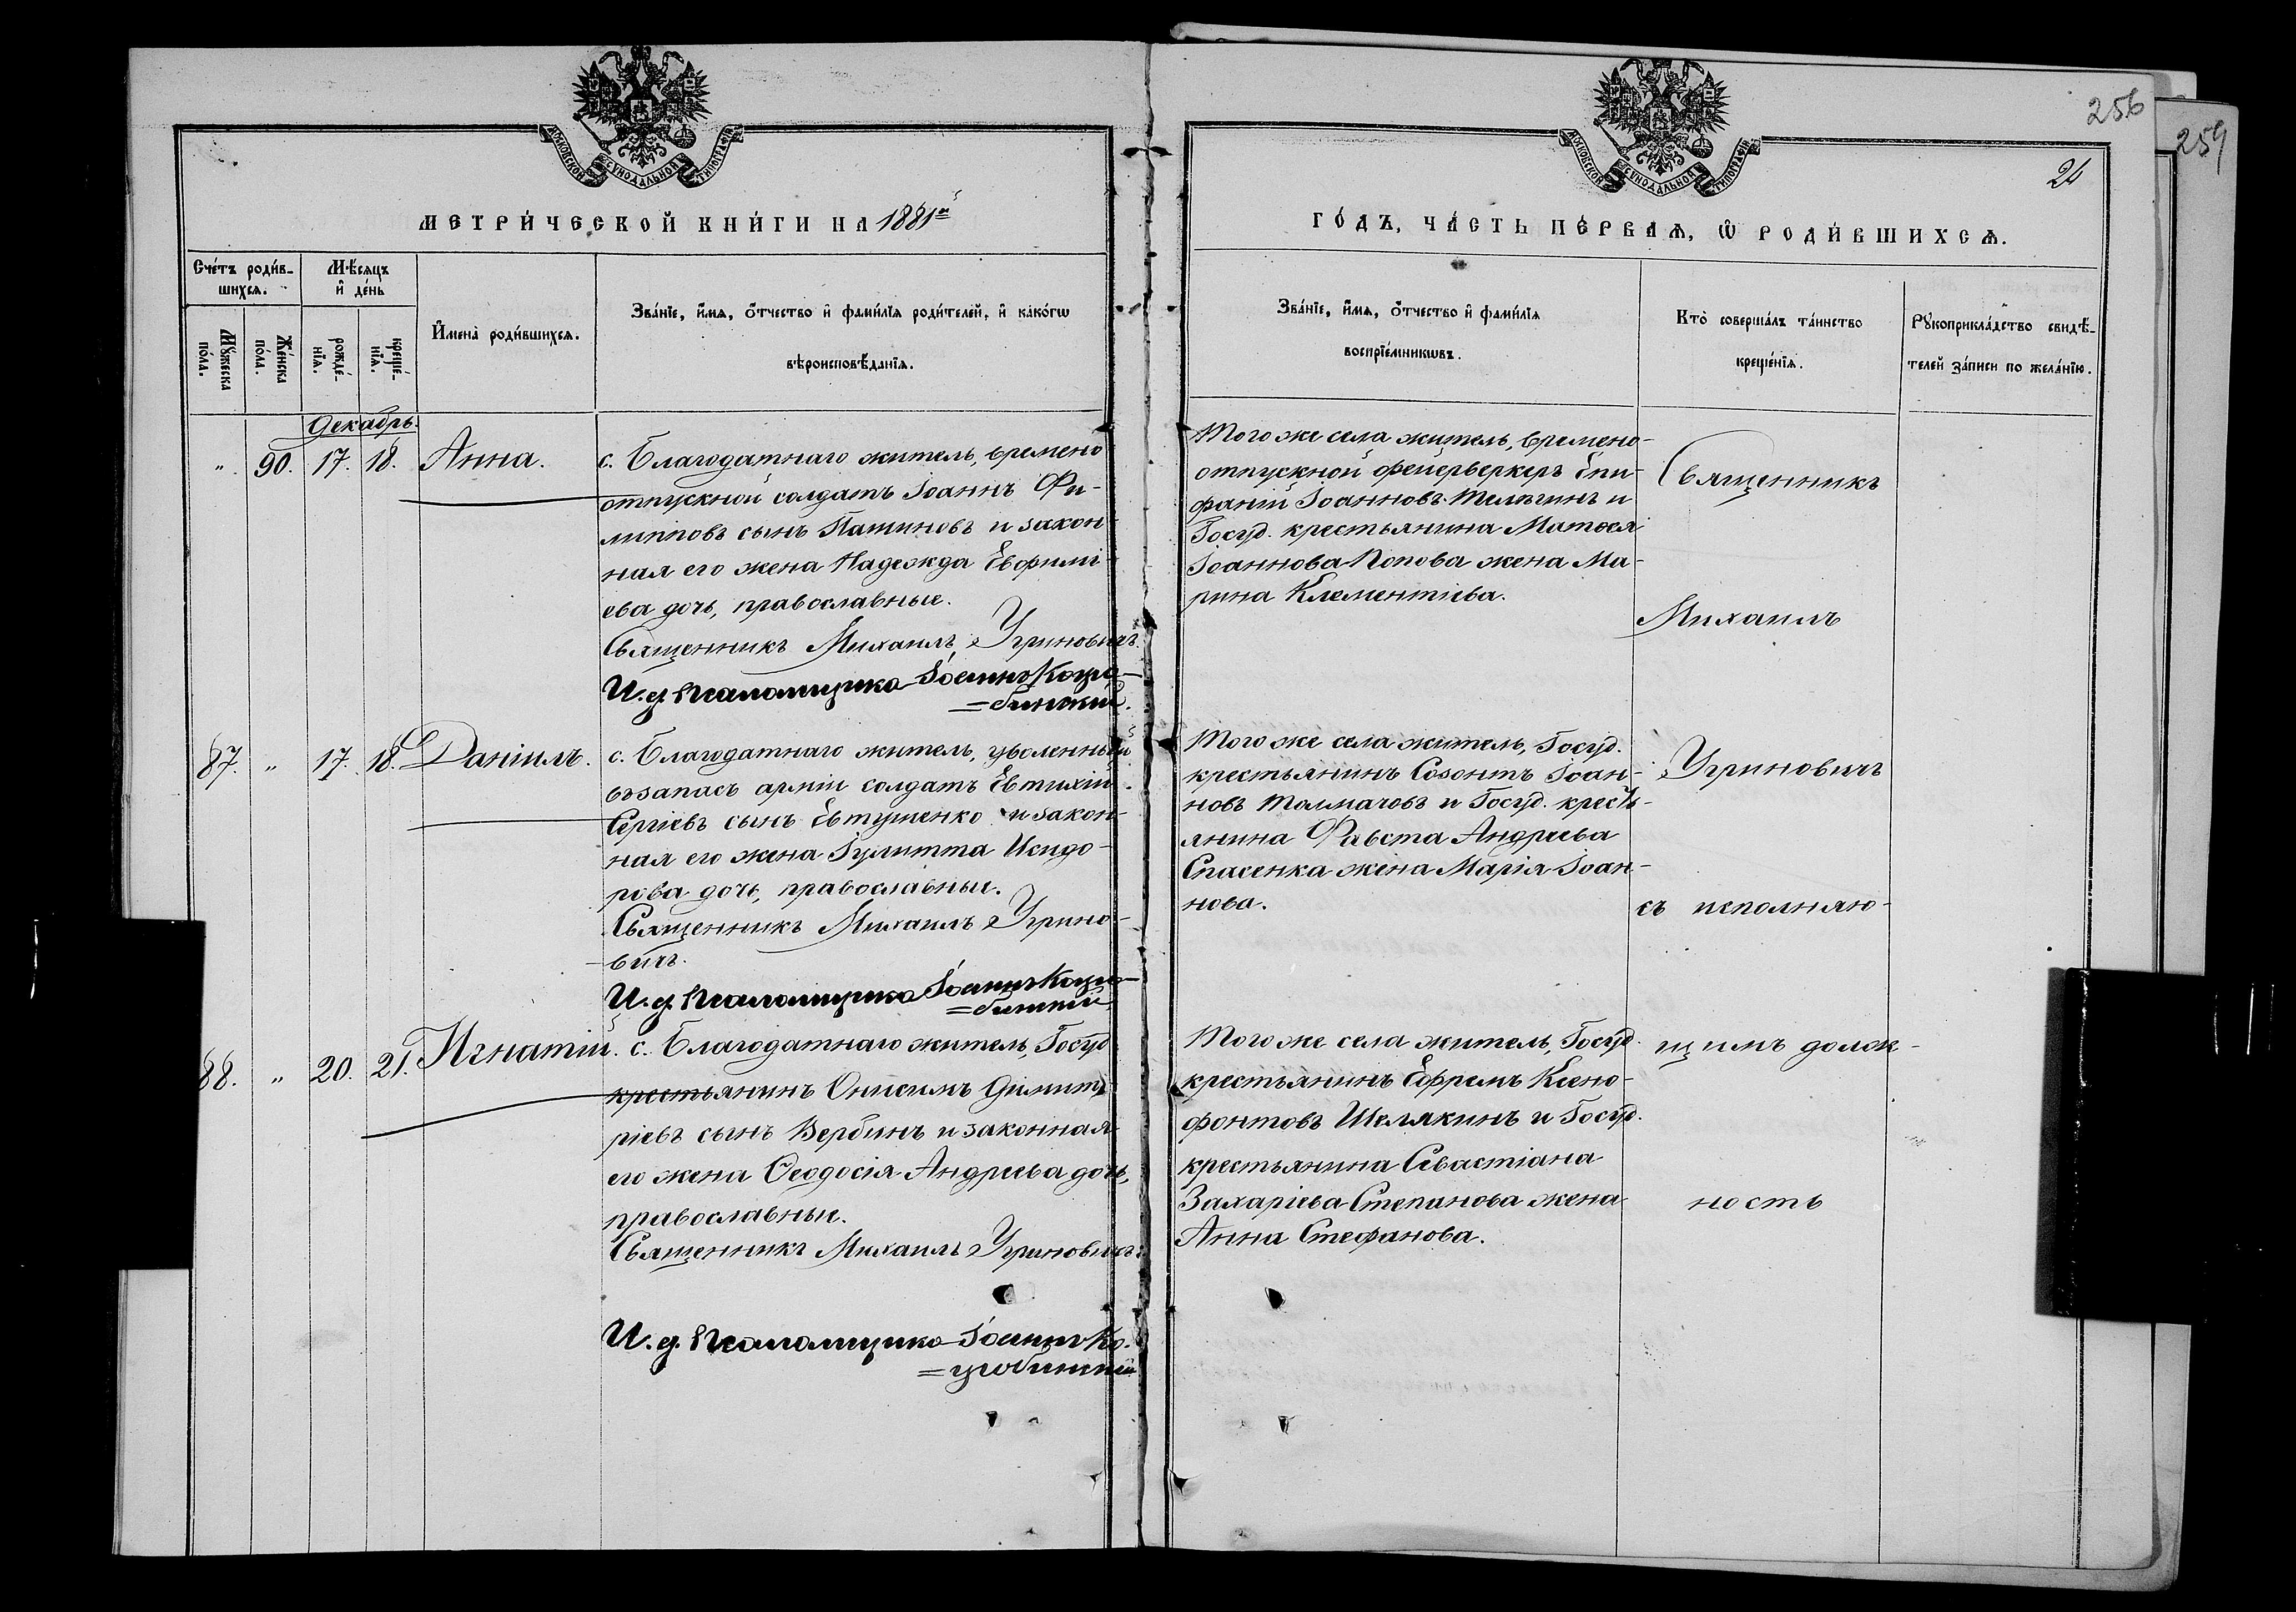 256
259
24
МОСКОВСКОЙ СУНОДАЛЬНОЙ ТИПОГРАФІИ
МОСКОВСКОЙ СУНОДАЛЬНОЙ ТИПОГРАФІИ
МЕТРИ́ЧЕСКОЙ КНИ́ГИ НА 1881й
ГО́ДЪ, ЧА́СТЬ ПЕ́РВАѦ, Ѡ РОДИ́ВШИХСѦ.
Сче́тъ роди́в-
шихсѧ.
Мѣ́сѧцъ
и҆ де́нь
Мꙋ́жеска
по́ла.
Же́нска
по́ла.
рожде́-
нїѧ.
креще́-
нїѧ.
И҆мена̀ роди́вшихсѧ.
Зва́нїе, и҆́мѧ, ѻ҆́тчество и҆ фами́лїѧ роди́телей, и҆ како́гѡ
вѣроисповѣ́данїѧ.
Зва́нїе, и҆́мѧ, ѻ҆́тчество и҆ фами́лїѧ
воспрїе́мникѡвъ.
Кто̀ соверша́лъ та́инство
креще́нїѧ.
Рꙋкоприкла́дство свидѣ́-
телей за́писи по жела́нїю.
Декабрь.
" 90. 17. 18. Анна.
с. Благодатнаго житель, времено
отпускной солдатъ Іоаннъ Фи-
липповъ сынъ Пашиновъ и закон-
ная его жена Надежда Евфимі-
ева дочь, православные.
Священникъ Михаилъ Угриновичъ.
И. д. Псаломщика Іоаннъ Коцю-
=бинскій.
Того же села житель, времено-
отпускной фейерверкеръ Епи-
фаній Іоанновъ Телѣгинъ и
Госуд. крестьянина Матѳея
Іоаннова Попова жена Ма-
рина Клементіева.
Священникъ
Михаилъ
87. " 17. 18. Даніилъ.
с. Благодатнаго житель, уволенный
въ запасъ арміи солдатъ Евтихій
Сергіевъ сынъ Евтушенко и закон-
ная его жена Іулитта Исидо-
рова дочь, православные.
Священникъ Михаилъ Угрино-
-вичъ.
И. д. Псаломщика Іоаннъ Коцю-
=бинскій.
Того же села житель, Госуд.
крестьянинъ Созонтъ Іоан-
новъ Толмачовъ и Госуд. кресть-
янина Фавста Андреева
Спасенка жена Марія Іоан-
нова.
Угриновичъ
съ исполняю-
88. " 20. 21. Игнатій.
с. Благодатнаго житель, Госуд.
крестьянинъ Онисимъ Димит-
ріевъ сынъ Вербинъ и законная
его жена Ѳеодосія Андреева дочь,
православные.
Священникъ Михаилъ Угриновичъ.
И. д. Псаломщика Іоаннъ Ко-
=цюбинскій
Того же села житель, Госуд.
крестьянинъ Ефремъ Ксено-
фонтовъ Шелякинъ и Госуд.
крестьянина Севастіана
Захаріева Степанова жена
Анна Стефанова.
щимъ долж-
ность